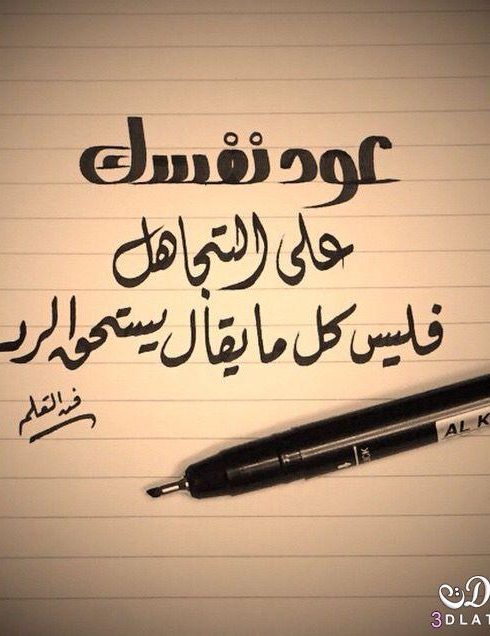 عود نفسك
على التجاهل
فليس كل ما يقال يستحق الرد
AL K
3DLAT